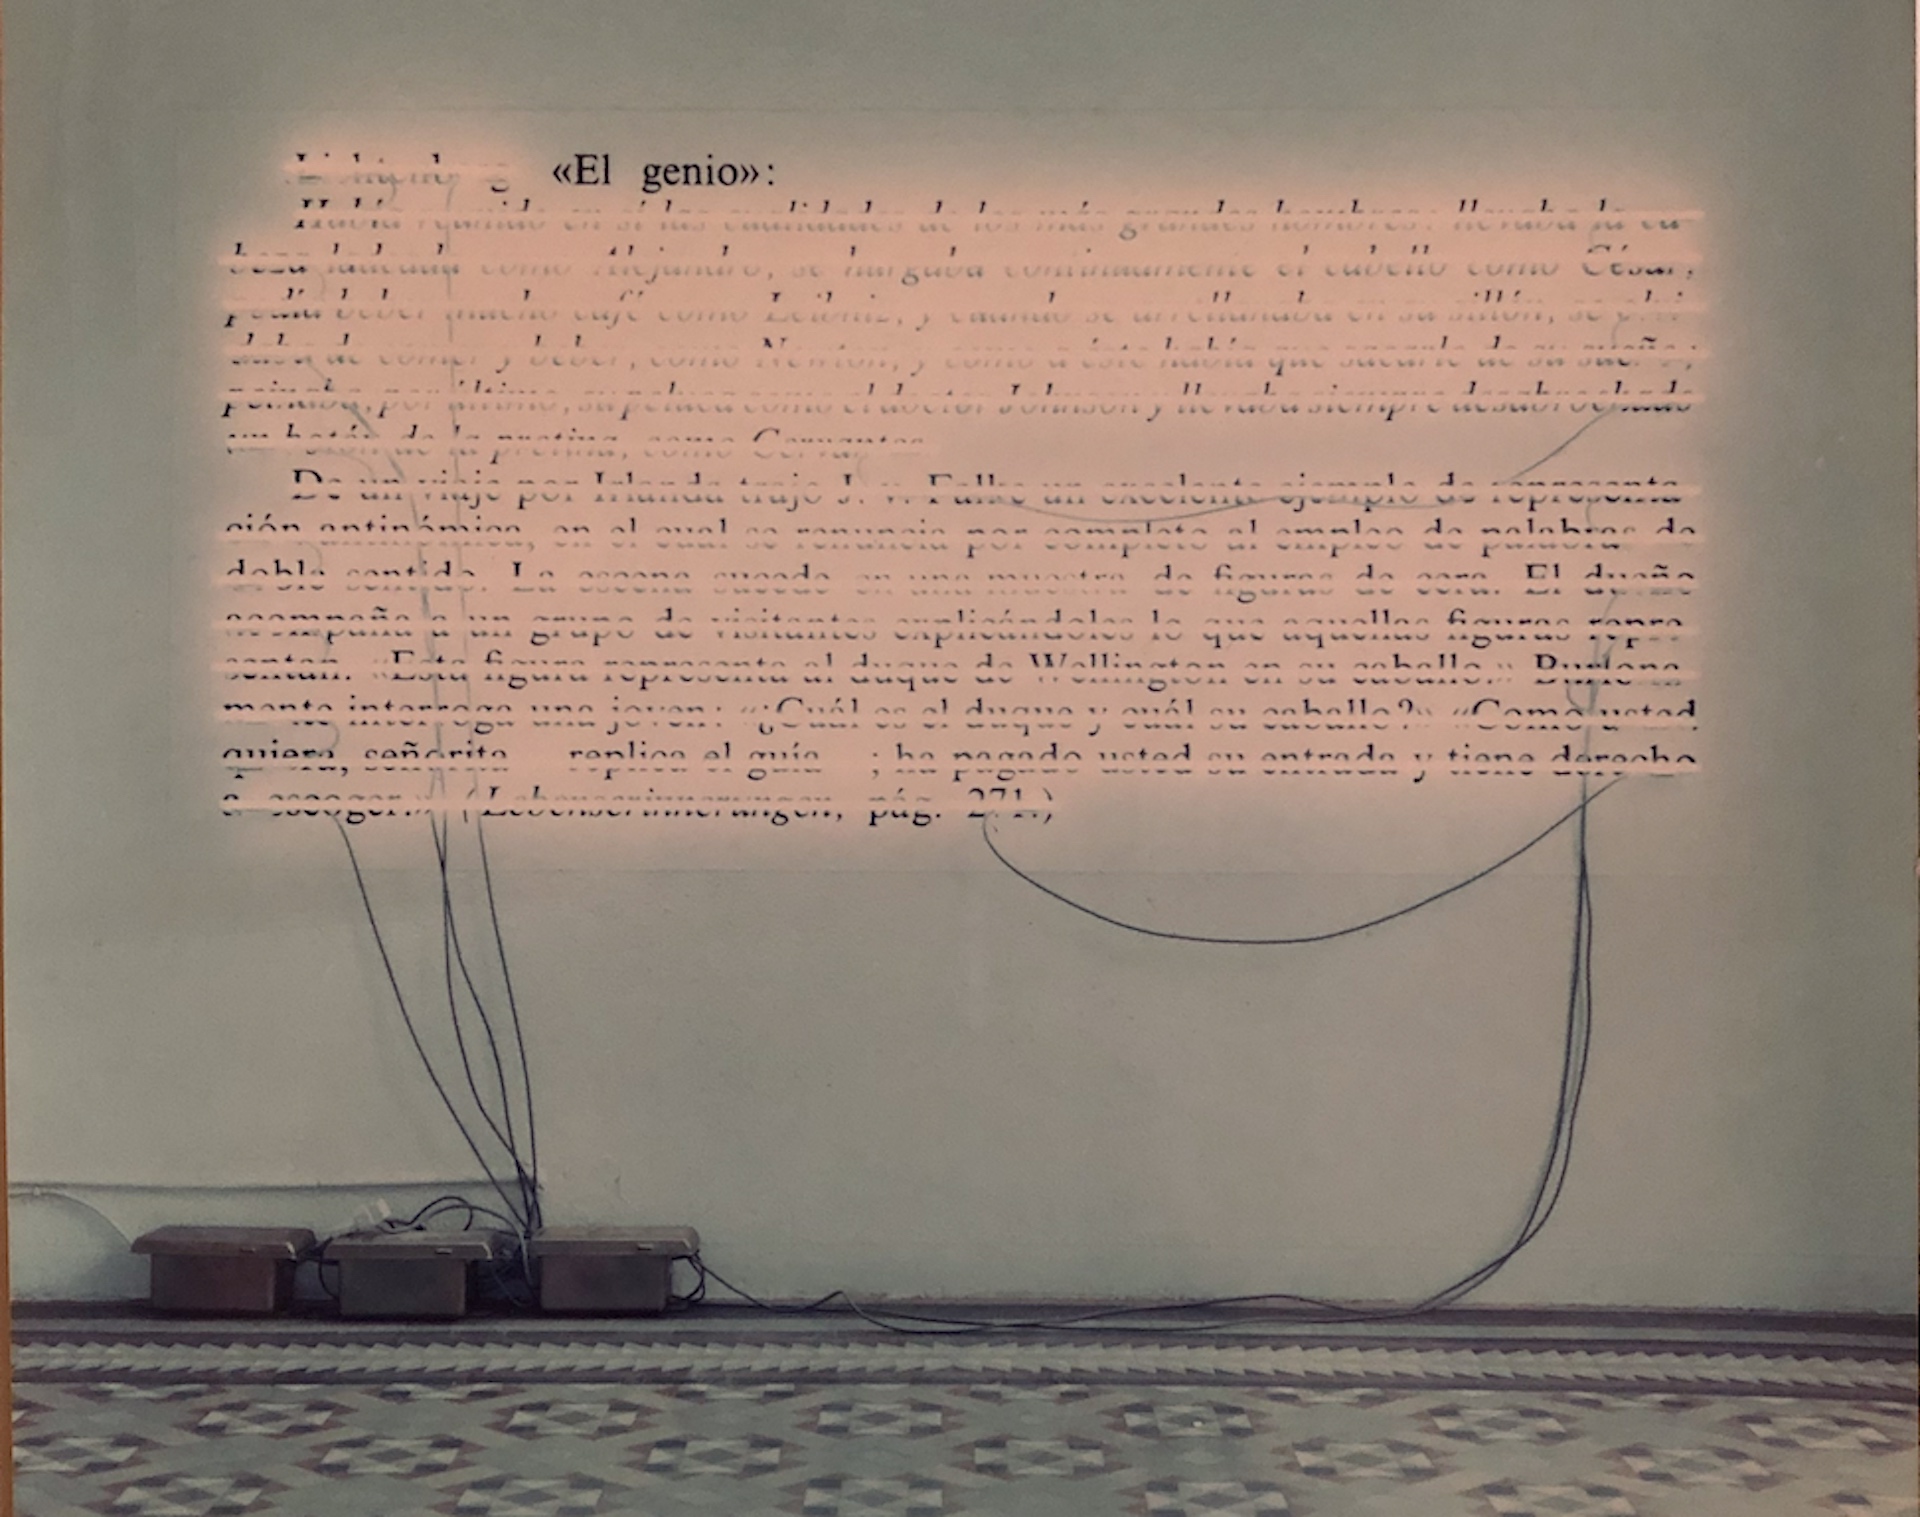 Lichtenberg «El genio»:
Había reunido en sí las cualidades de los más grandes hombres: llevaba la ca-
beza ladeada como Alejandro, se hurgaba continuamente el cabello como César,
podía beber mucho café como Leibniz, y cuando se arrellanaba en su sillón, se olvi-
daba de comer y beber, como Newton, y como a éste había que sacarle de su sueño;
peinaba, por último, su peluca como el doctor Johnson y llevaba siempre desabrochado
un botón de la pretina, como Cervantes.
De un viaje por Irlanda trajo J. v. Falke un excelente ejemplo de representa-
ción antinómica, en el cual se renuncia por completo al empleo de palabras de
doble sentido. La escena sucede en una muestra de figuras de cera. El dueño
acompaña a un grupo de visitantes explicándoles lo que aquellas figuras repre-
sentan. «Esta figura representa al duque de Wellington en su caballo.» Burlona-
mente interroga una joven: «¿Cuál es el duque y cuál su caballo?» «Como usted
quiera, señorita —replica el guía—; ha pagado usted su entrada y tiene derecho
a escoger.» (Lebenserinnerungen, pág. 271.)